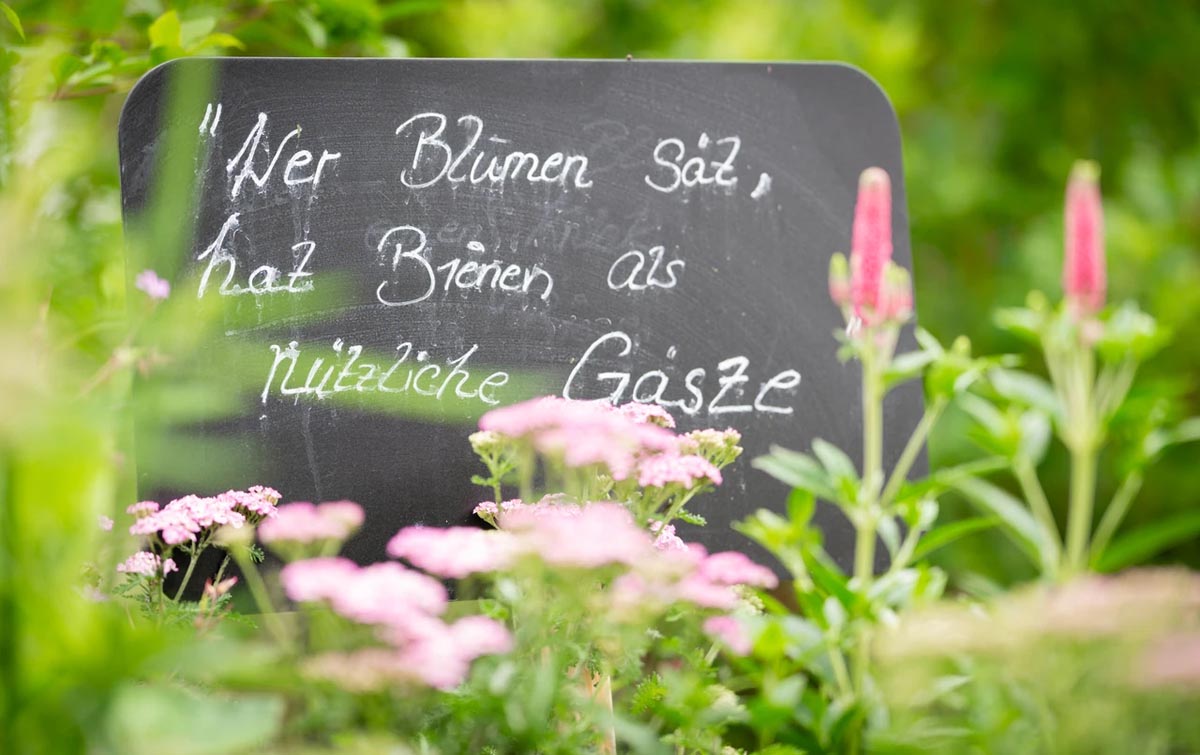 "Wer Blumen sät,
hat Bienen als
nützliche Gäste"